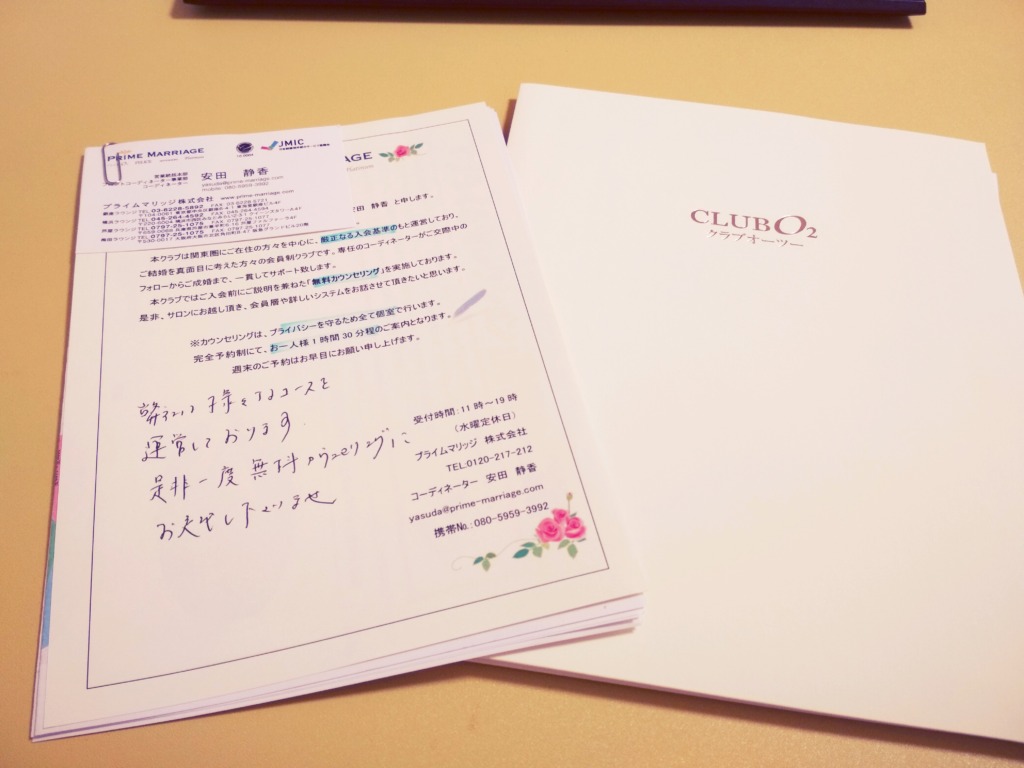 PRIME MARRIAGE
JMIC
コーディネーター
安田 静香
yasuda@prime-marriage.com
mobile: 080-5959-3992
プライムマリッジ株式会社 www.prime-marriage.com
TEL.03-6228-5892 FAX 03-6228-5721
TEL.045-264-4592 FAX 045-264-4594
TEL.0797-25-1075 FAX 0797-25-1077
TEL.0797-25-1075 FAX 0797-25-1077
AGE
安田 静香 と申します。
本クラブは関東圏にご在住の方々を中心に、厳正なる入会基準のもと運営しており、
ご結婚を真面目に考えた方々の会員制クラブです。専任のコーディネーターがご交際中の
フォローからご成婚まで、一貫してサポート致します。
本クラブではご入会前にご説明を兼ねた「無料カウンセリング」を実施しております。
是非、サロンにお越し頂き、会員層や詳しいシステムをお話させて頂きたいと思います。
※カウンセリングは、プライバシーを守るため全て個室で行います。
完全予約制にて、お一人様1時間30分程のご案内となります。
週末のご予約はお早目にお願い申し上げます。
様々なコースを
運営しております
是非一度無料カウンセリングに
お越し下さいませ
受付時間:11時~19時
(水曜定休日)
プライムマリッジ 株式会社
TEL:0120-217-212
コーディネーター 安田 静香
yasuda@prime-marriage.com
携帯No.:080-5959-3992
CLUB O2
クラブオーツー